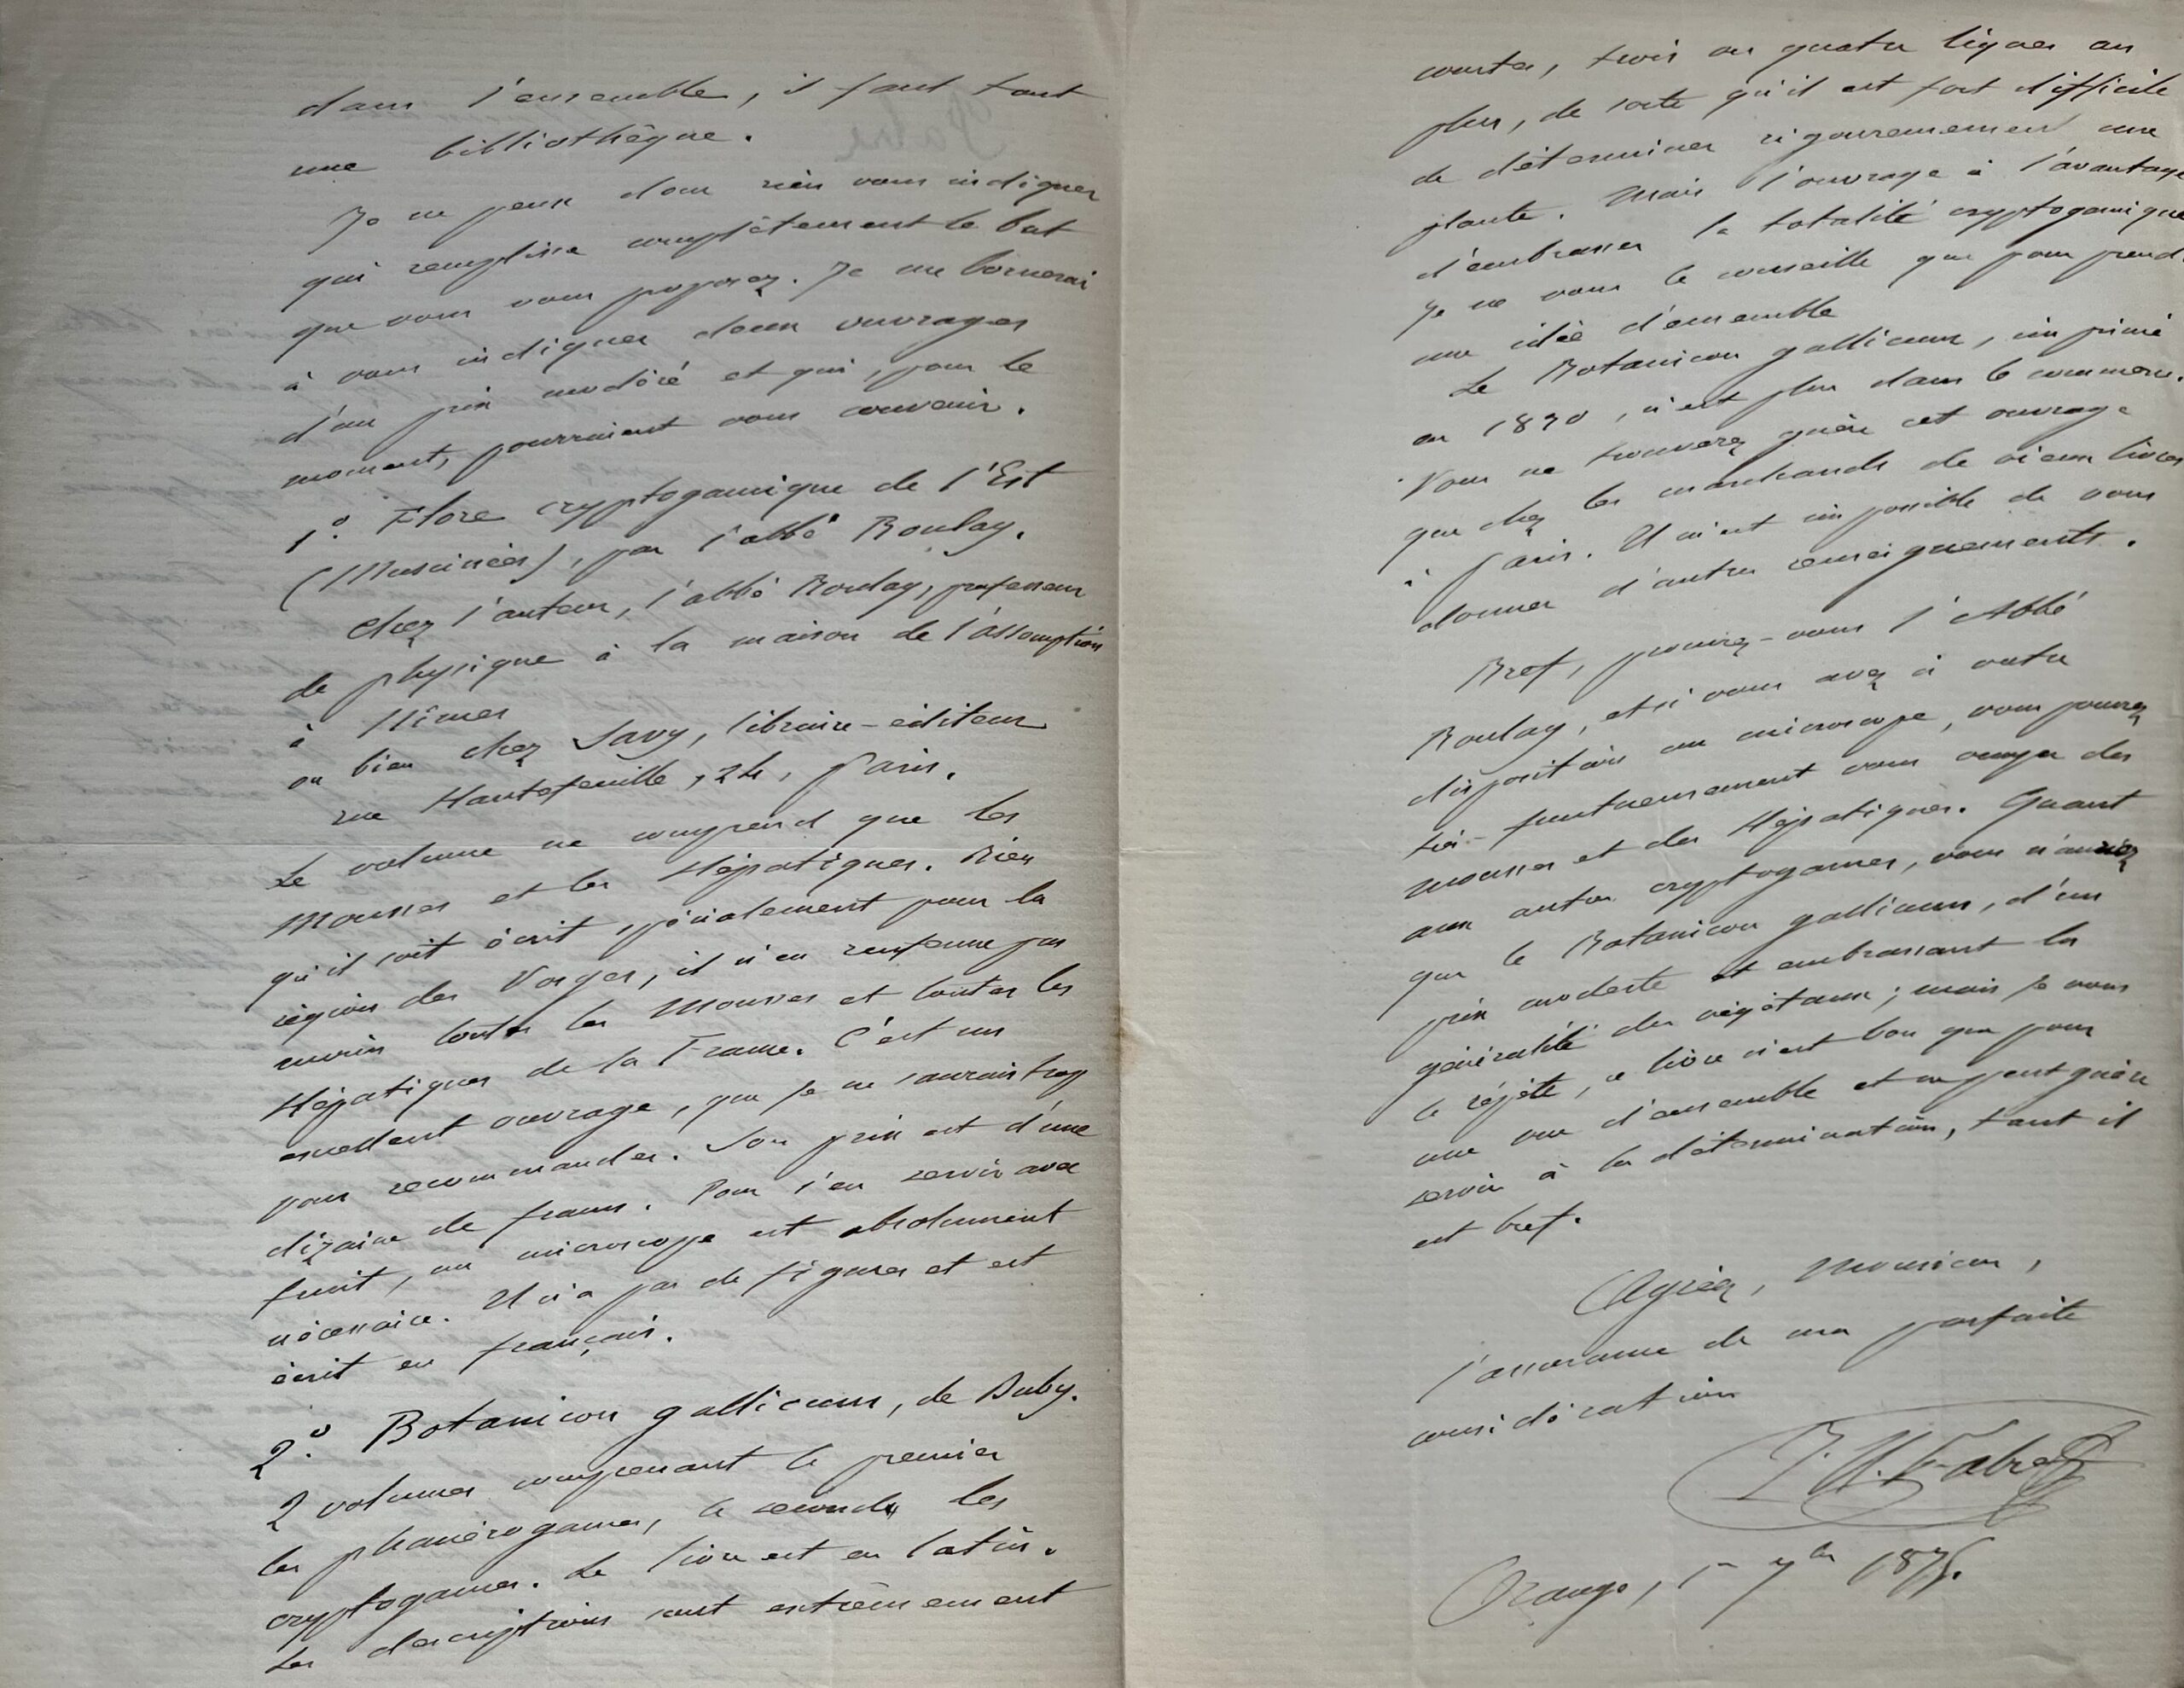 dans l'ensemble, il faut tout
une bibliothèque.
Je ne peux donc rien vous indiquer
qui remplisse complètement le but
que vous vous proposez. Je me bornerai
à vous indiquer deux ouvrages
d'un prix modéré et qui, pour le
moment, pourraient vous convenir.
1º. Flore cryptogamique de l'Est
(Muscinées), par l'abbé Boulay.
Chez l'auteur, l'abbé Boulay, professeur
de physique à la maison de l'assomption
à Nîmes
ou bien chez Savy, libraire-éditeur
rue Hautefeuille, 24, Paris.
Le volume ne comprend que les
Mousses et les Hépatiques. Bien
qu'il soit écrit spécialement pour la
région des Vosges, il n'en renferme pas
moins toutes les Mousses et toutes les
Hépatiques de la France. C'est un
excellent ouvrage, que je ne saurais trop
vous recommander. Son prix est d'une
dizaine de francs. Pour s'en servir avec
fruit, un microscope est absolument
nécessaire. Il n'a pas de figures et est
écrit en français.
2º. Botanicon gallicum, de Duby.
2 volumes comprenant le premier
les phanérogames, le second les
cryptogames. Le livre est en latin.
Les descriptions sont extrêmement
Fabre
courtes, trois ou quatre lignes au
plus, de sorte qu'il est fort difficile
de déterminer rigoureusement une
plante. Mais l'ouvrage à l'avantage
d'embrasser la totalité cryptogamique
Je ne vous le conseille que pour prend
une idée d'ensemble
Le Botanicon gallicum, imprimé
en 1830, n'est plus dans le commerce.
Vous ne trouverez guère cet ouvrage
que chez les marchands de vieux livres
à Paris. Il m'est impossible de vous
donner d'autres renseignements.
Bref, procurez-vous l'Abbé
Boulay, et si vous avez à votre
disposition un microscope, vous pourrez
très-fructueusement vous occuper des
mousses et des Hépatiques. Quant
aux autres cryptogames, vous n'aurez
que le Botanicon gallicum, d'un
prix modeste et embrassant la
généralité des végétaux; mais je vous
le répète, ce livre n'est bon que pour
une vue d'ensemble et ne peut guère
servir à la détermination, tant il
est bref.
Agréez, Monsieur,
l'assurance de ma parfaite
considération
J. H. Fabre
Orange, 1er 7bre